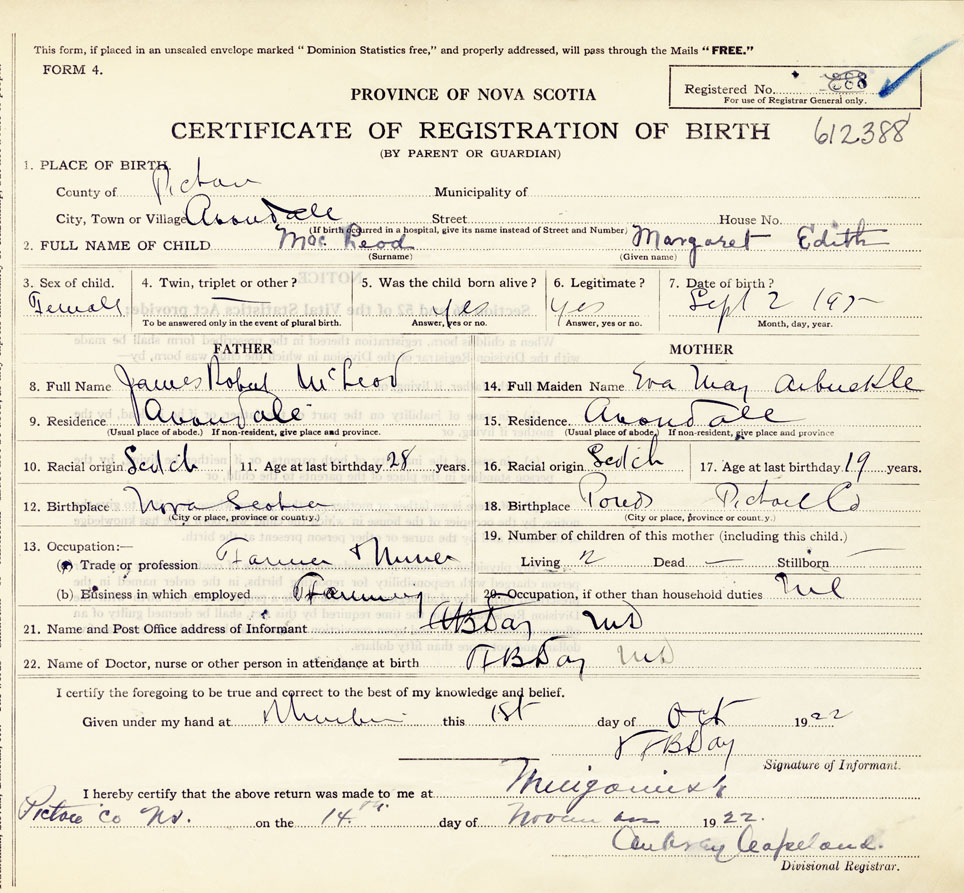 This form, if placed in an unsealed envelope marked “Dominion Statistics free,” and properly addressed, will pass through the Mails “FREE.”
FORM 4.
Registered No. 388
For use of Registrar General only.
PROVINCE OF NOVA SCOTIA
CERTIFICATE OF REGISTRATION OF BIRTH 612388
(BY PARENT OR GUARDIAN)
1. PLACE OF BIRTH
County of Pictou Municipality of
City, Town or Village Avondale Street House No.
(If birth occurred in a hospital, give its name instead of Street and Number)
2. FULL NAME OF CHILD Mac Leod Margaret Edith
(Surname) (Given name)
3. Sex of child. 4. Twin, triplet or other? 5. Was the child born alive? 6. Legitimate? 7. Date of birth?
Female — yes yes Sept 2 19
To be answered only in the event of plural birth. Answer, yes or no. Answer, yes or no. Month, day, year.
FATHER MOTHER
8. Full Name James Robert McLeod 14. Full Maiden Name Eva May Arbuckle
9. Residence Avondale 15. Residence Avondale
(Usual place of abode.) If non-resident, give place and province. (Usual place of abode.) If non-resident, give place and province
10. Racial origin Scotch 11. Age at last birthday 28 years. 16. Racial origin Scotch 17. Age at last birthday 19 years.
12. Birthplace Nova Scotia 18. Birthplace Pictou Co
(City or place, province or country.) (City or place, province or country.)
13. Occupation:— 19. Number of children of this mother (including this child.)
(a) Trade or profession Farmer & Miner Living 2 Dead — Stillborn —
(b) Business in which employed Farming 20. Occupation, if other than household duties Nil
21. Name and Post Office address of Informant Day MD
22. Name of Doctor, nurse or other person in attendance at birth HB Day MD
I certify the foregoing to be true and correct to the best of my knowledge and belief.
Given under my hand at this 1st day of Oct 1922
HB Day
Signature of Informant.
I hereby certify that the above return was made to me at Merigomish
Pictou Co N.S. on the 14th day of November 1922.
Aubrey Copeland.
Divisional Registrar.